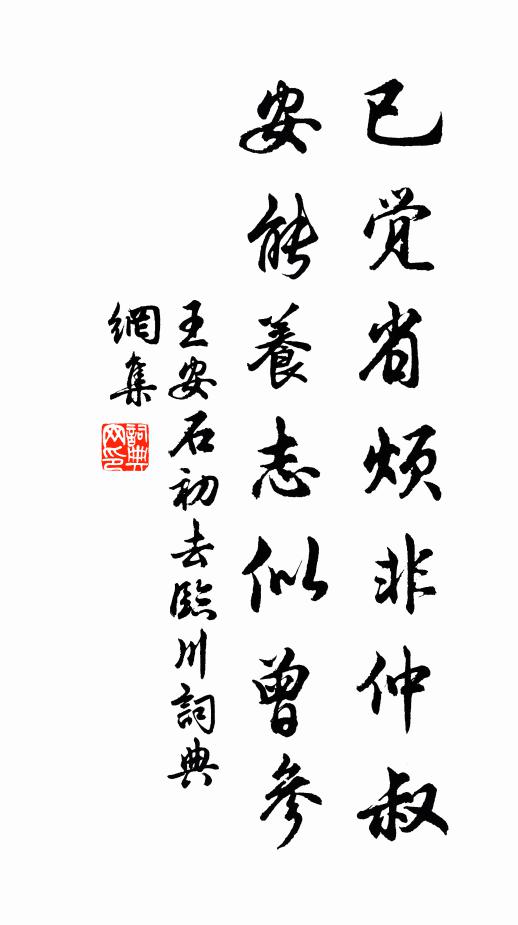 已觉省烦非仲叔
安能養志似曾參
王安石初去臨川詞典
網集
詞典網印